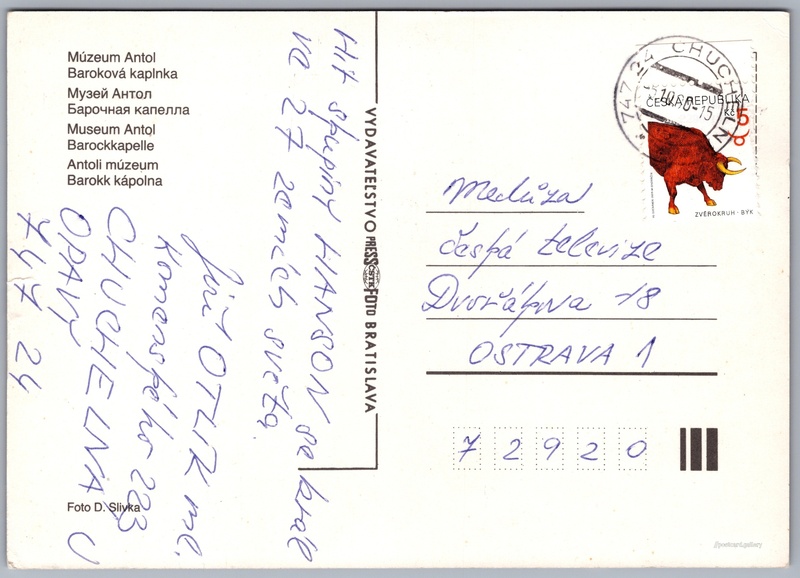 Múzeum Antol
Baroková kaplnka
Музей Антол
Барочная капелла
Museum Antol
Barockkapelle
Antoli múzeum
Barokk kápolna
Foto D. Slivka
VYDAVATEĽSTVO PRESSFOTO BRATISLAVA
Hit skupiny HANSON se hrál
ve 27 zemích světa.
Jiří OTLIK ml.
Komenského 223
CHUCHELNÁ U
OPAVY
747 24
747 24 CHUCHELN
ČESKÁ REPUBLIKA
5
Kč
ZVĚROKRUH · BÝK
Medúza
Česká televize
Dvořákova 18
OSTRAVA 1
7 2 9 2 0